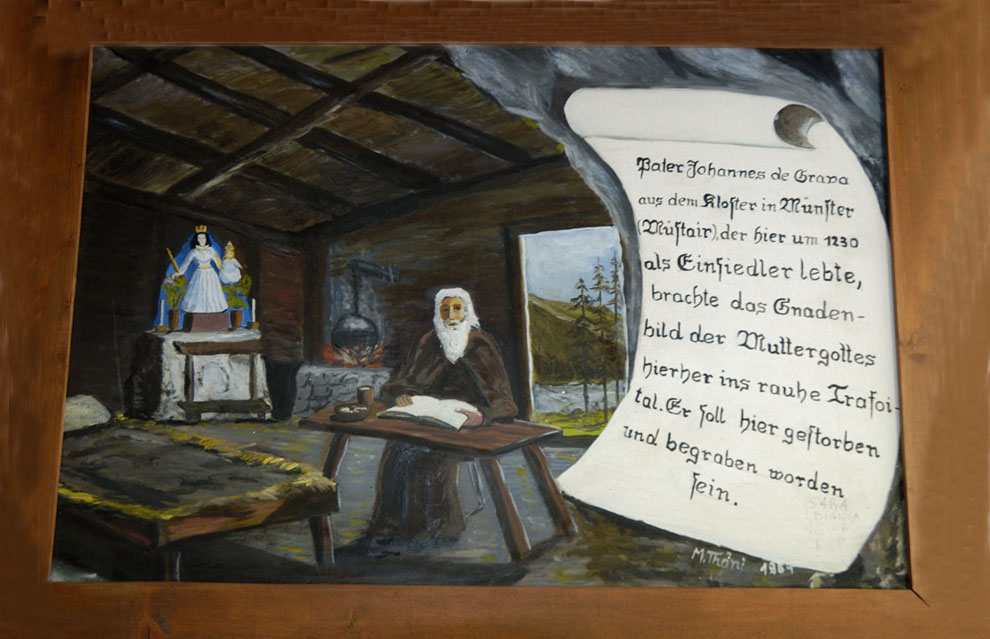 Pater Johannes de Grava
aus dem Kloster in Münster
(Müstair), der hier um 1230
als Einsiedler lebte,
brachte das Gnaden-
bild der Muttergottes
hierher ins rauhe Trafoi-
tal. Er soll hier gestorben
und begraben worden
sein.
M. Thöni